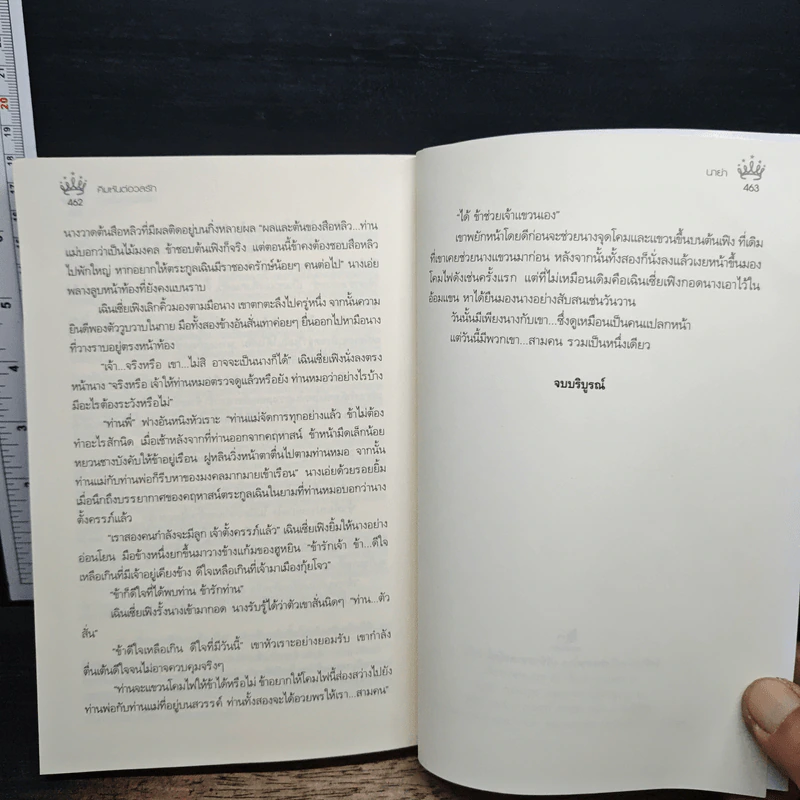 462
คิมหันต์อวลรัก
นางวาดต้นสือหลิวที่มีผลติดอยู่บนกิ่งหลายผล "ผลและต้นของสือหลิว...ท่าน
แม่บอกว่าเป็นไม้มงคล ข้าชอบต้นเฟิงก็จริง แต่ตอนนี้ข้าคงต้องชอบสือหลิว
ไปพักใหญ่ หากอยากให้ตระกูลเฉินมีราชองครักษ์น้อยๆ คนต่อไป" นางเอ่ย
พลางลูบหน้าท้องที่ยังคงแบนราบ
เฉินเซี่ยเฟิงเลิกคิ้วมองตามมือนาง เขาตกตะลึงไปครู่หนึ่ง จากนั้นความ
ยินดีพองตัววูบวาบในกาย มือทั้งสองข้างอันสั่นเทาค่อยๆ ยื่นออกไปหามือนาง
ที่วางราบอยู่ตรงหน้าท้อง
"เจ้า...จริงหรือ เขา...ไม่สิ อาจจะเป็นนางก็ได้" เฉินเซี่ยเฟิงนั่งลงตรง
หน้านาง "จริงหรือ เจ้าให้ท่านหมอตรวจดูแล้วหรือยัง ท่านหมอว่าอย่างไรบ้าง
มีอะไรต้องระวังหรือไม่"
"ท่านพี่" ฟางอันหนิงหัวเราะ "ท่านแม่จัดการทุกอย่างแล้ว ข้าไม่ต้อง
ทำอะไรสักนิด เมื่อเช้าหลังจากที่ท่านออกจากคฤหาสน์ ข้าหน้ามืดเล็กน้อย
หยวนซางบังคับให้ข้าอยู่เรือน ฝูหลินวิ่งหน้าตาตื่นไปตามท่านหมอ จากนั้น
ท่านแม่กับท่านพ่อก็รีบหาของมงคลมากมายเข้าเรือน" นางเอ่ยด้วยรอยยิ้ม
เมื่อนึกถึงบรรยากาศของคฤหาสน์ตระกูลเฉินในยามที่ท่านหมอบอกว่านาง
ตั้งครรภ์แล้ว
"เราสองคนกำลังจะมีลูก เจ้าตั้งครรภ์แล้ว" เฉินเซี่ยเฟิงยิ้มให้นางอย่าง
อ่อนโยน มือข้างหนึ่งยกขึ้นมาวางข้างแก้มของฮูหยิน "ข้ารักเจ้า ข้า...ดีใจ
เหลือเกินที่มีเจ้าอยู่เคียงข้าง ดีใจเหลือเกินที่เจ้ามาเมืองกุ้ยโจว"
"ข้าก็ดีใจที่ได้พบท่าน ข้ารักท่าน"
เฉินเซี่ยเฟิงรั้งนางเข้ามากอด นางรับรู้ได้ว่าตัวเขาสั่นนิดๆ "ท่าน...ตัว
สั่น"
"ข้าดีใจเหลือเกิน ดีใจที่มีวันนี้" เขาหัวเราะอย่างยอมรับ เขากำลัง
ตื่นเต้นดีใจจนไม่อาจควบคุมจริงๆ
"ท่านจะแขวนโคมไฟให้ข้าได้หรือไม่ ข้าอยากให้โคมไฟนี้ส่องสว่างไปยัง
ท่านพ่อกับท่านแม่ที่อยู่บนสวรรค์ ท่านทั้งสองจะได้อวยพรให้เรา...สามคน"
นาย่า
463
"ได้ ข้าช่วยเจ้าแขวนเอง"
เขาพยักหน้าโดยดีก่อนจะช่วยนางจุดโคมและแขวนขึ้นบนต้นเฟิง ที่เดิม
ที่เขาเคยช่วยนางแขวนมาก่อน หลังจากนั้นทั้งสองก็นั่งลงแล้วเงยหน้าขึ้นมอง
โคมไฟดังเช่นครั้งแรก แต่ที่ไม่เหมือนเดิมคือเฉินเซี่ยเฟิงกอดนางเอาไว้ใน
อ้อมแขน หาได้ยืนมองนางอย่างสับสนเช่นวันวาน
วันนั้นมีเพียงนางกับเขา...ซึ่งดูเหมือนเป็นคนแปลกหน้า
แต่วันนี้มีพวกเขา...สามคน รวมเป็นหนึ่งเดียว
จบบริบูรณ์